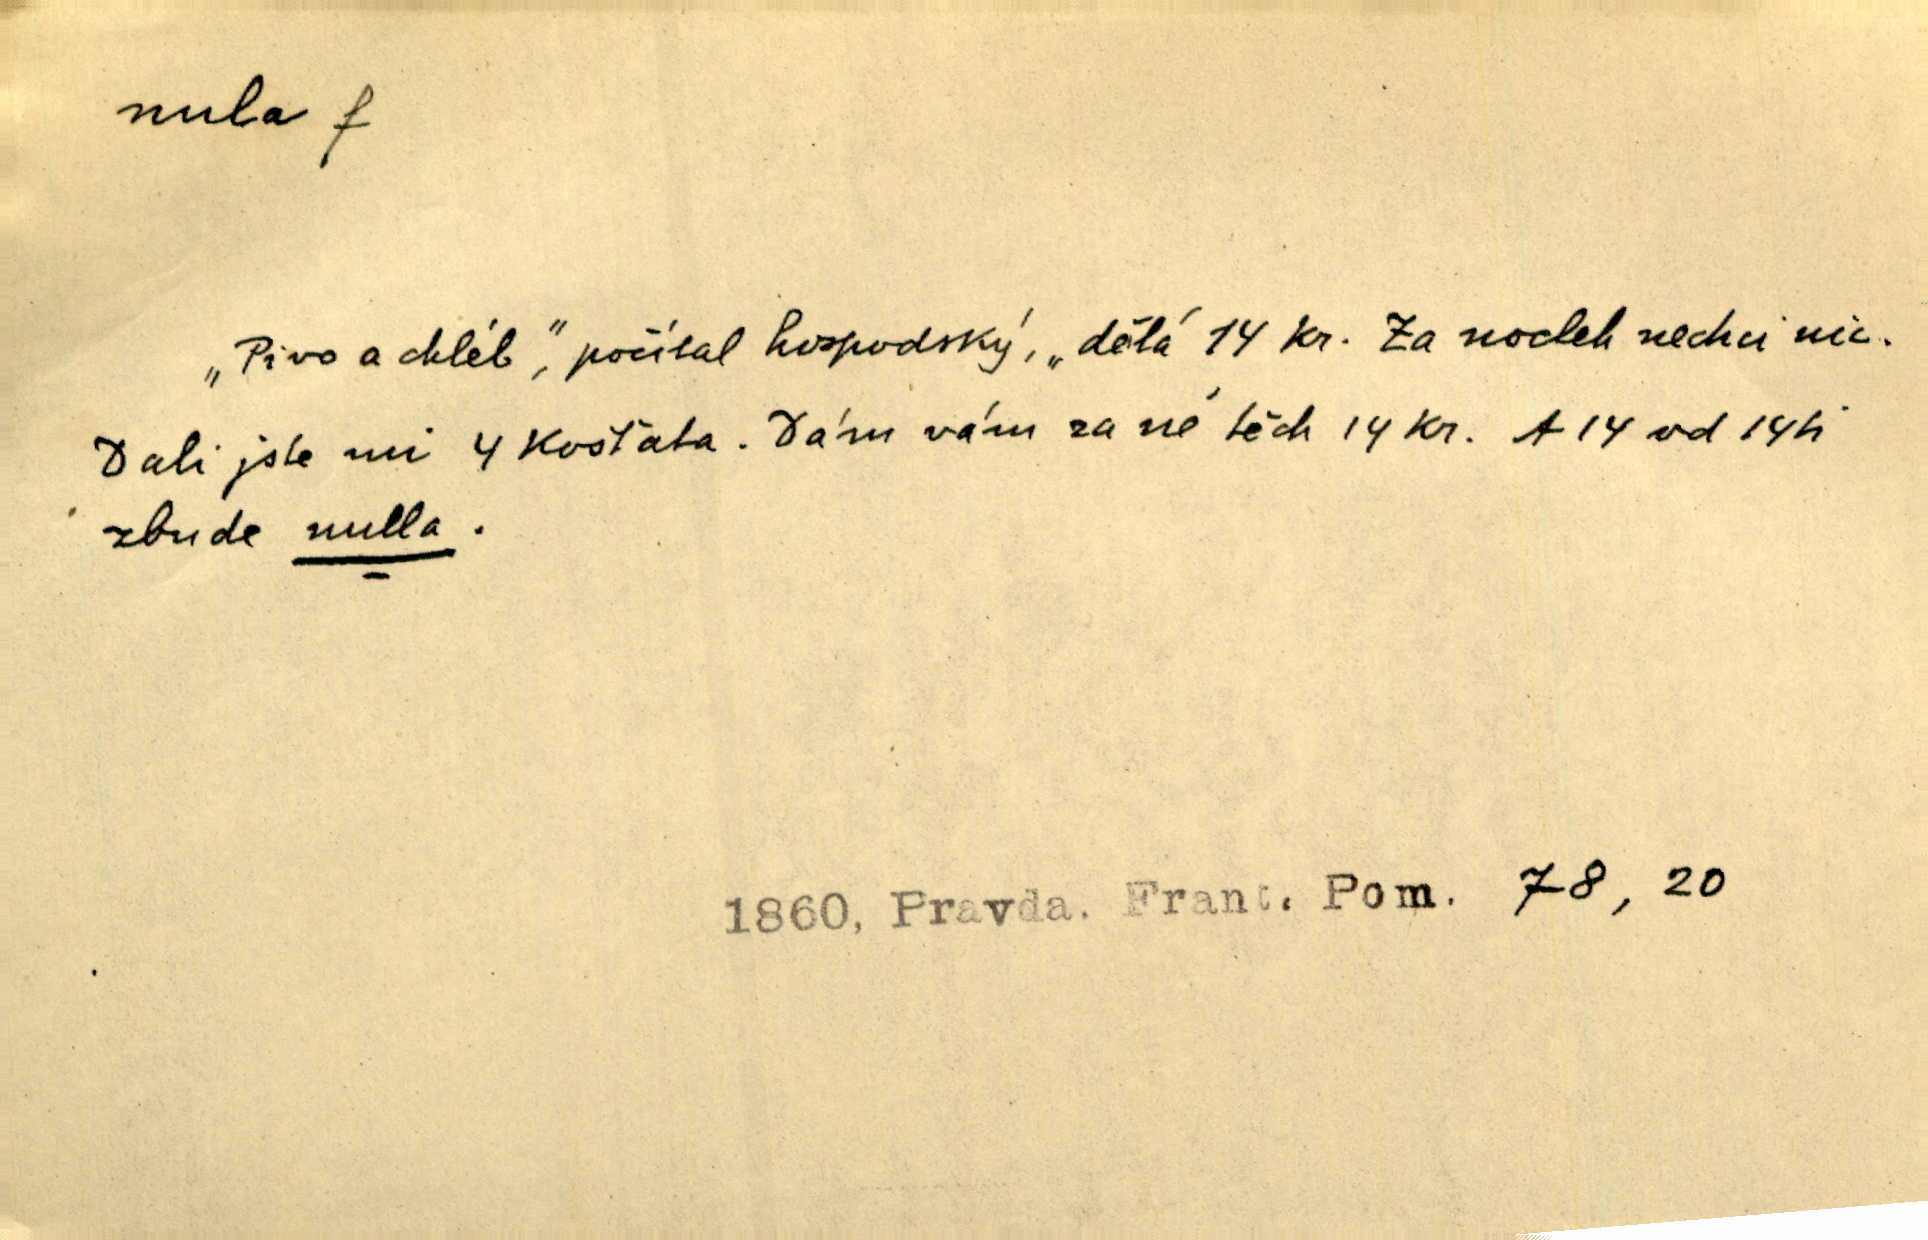 nula f
„Pivo a chléb”, počítal hospodský, „dělá 14 kr. Za nocleh nechci nic.
Dali jste mi 4 košťata. Dám vám za ně těch 14 kr. A 14 od 14ti
zbude nulla.
1860, Pravda. Frant. Pom. 78, 20